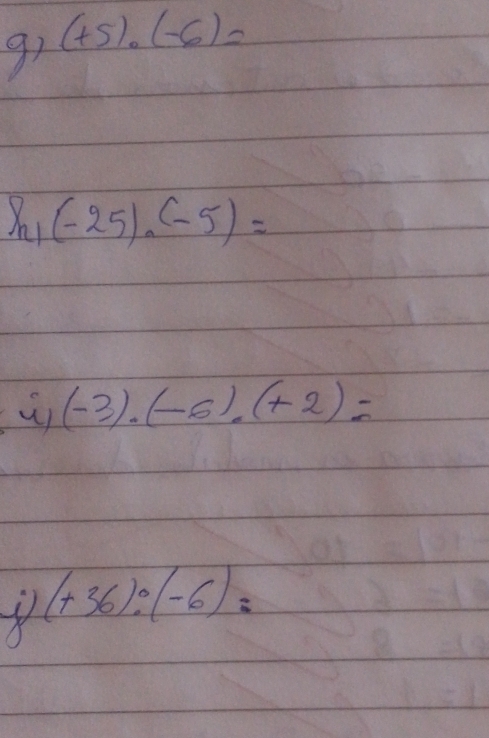 g) (+5).(-6)=
h) (-25).(-5)=
i) (-3).(-6).(+2)=
j) (+36):(-6)=